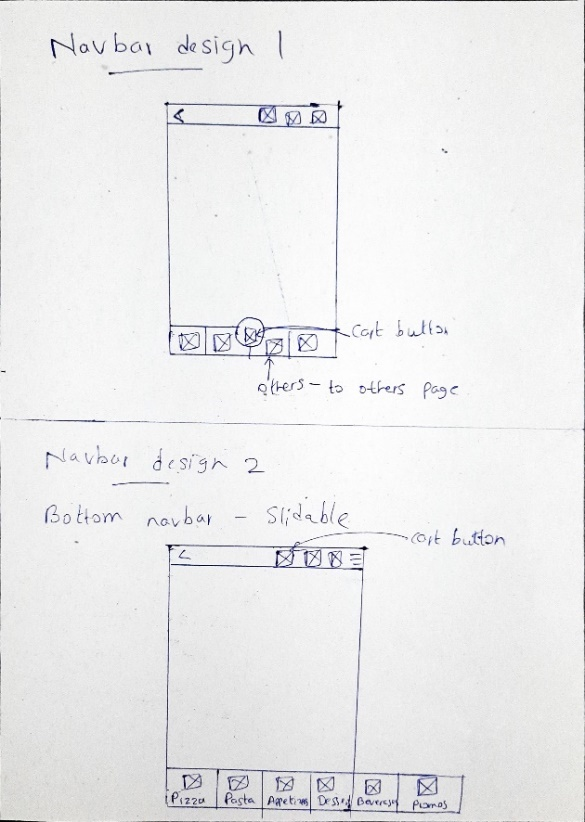 Navbar design 1
<
Cart button
Others - to others page
Navbar design 2
Bottom navbar - Slidable
cart button
<
Pizza Pasta Appetizers Dessert Beverages Promos